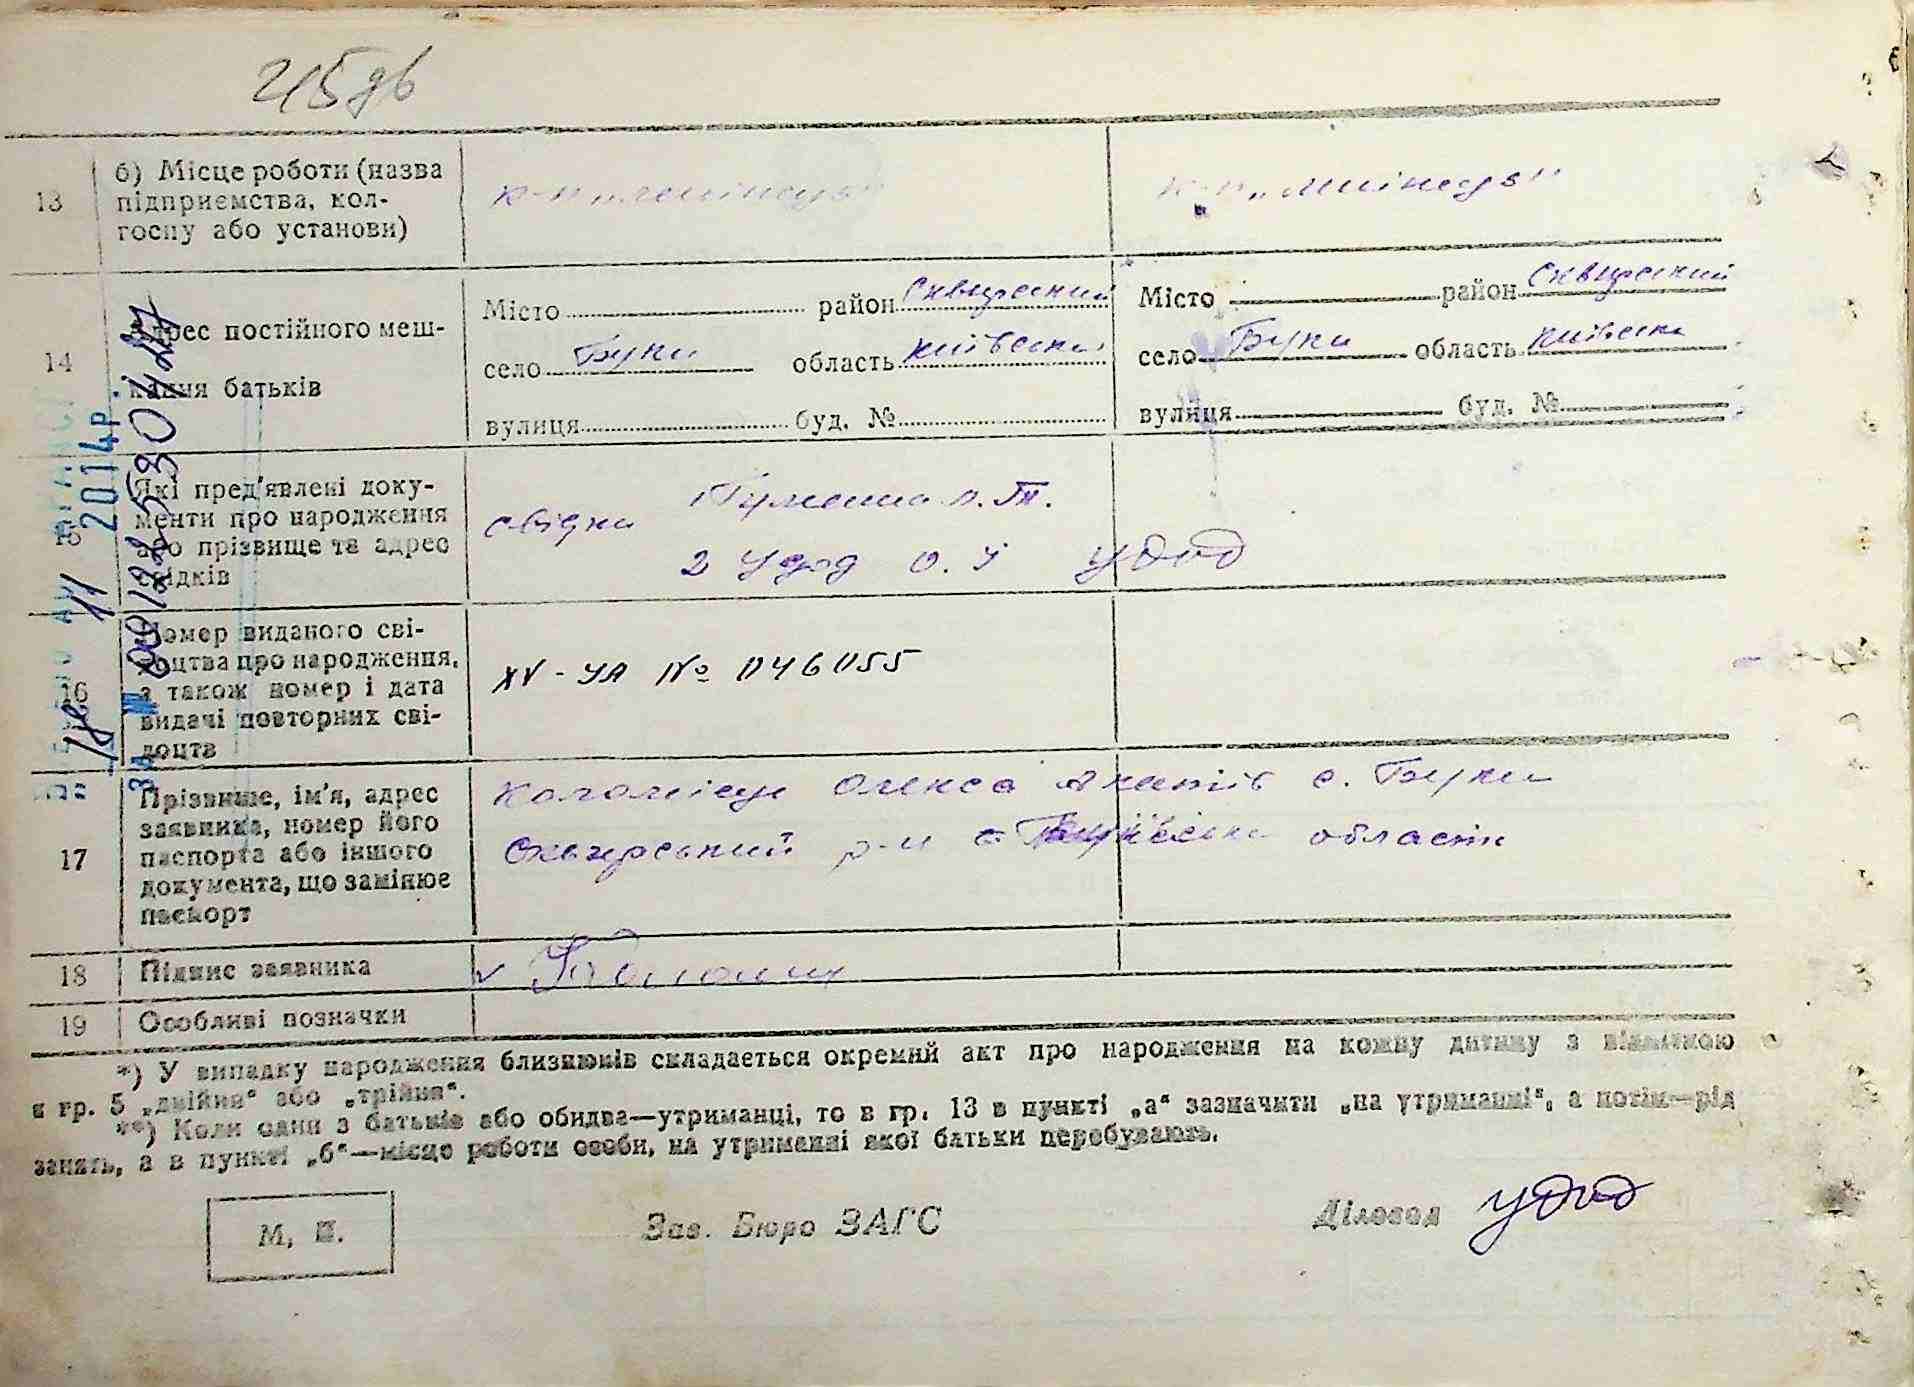 215 зв
13
б) Місце роботи (назва
підприємства, кол-
госпу або установи)
14
Адрес постійного меш-
кання батьків
Місто район Сквирський
село Буки область Київська
вулиця буд. №
Місто район Сквирський
село Буки область Київська
вулиця буд. №
15
Які пред'явлені доку-
менти про народження
або прізвище та адрес
свідків
свідки
2 Удод О. У Удод
16
Номер виданого сві-
доцтва про народження,
а також номер і дата
видачі повторних сві-
доцтв
XV - УА № 046055
17
Прізвище, ім'я, адрес
заявника, номер його
паспорта або іншого
документа, що замінює
паспорт
Коломієць Олекса с. Буки
Сквирський р-н області
18
Підпис заявника
19
Особливі позначки
*) У випадку народження близнюків складається окремий акт про народження на кожну дитину з відміткою
в гр. 5 „двійня" або „трійня".
**) Коли один з батьків або обидва—утриманці, то в гр. 13 в пункті „а" зазначити „на утриманні", а потім—рід
занять, а в пункті „б"—місце роботи особи, на утриманні якої батьки перебувають.
М. П.
Зав. Бюро ЗАГС
Діловод Удод
11 2014р.
ЗА №00122530427